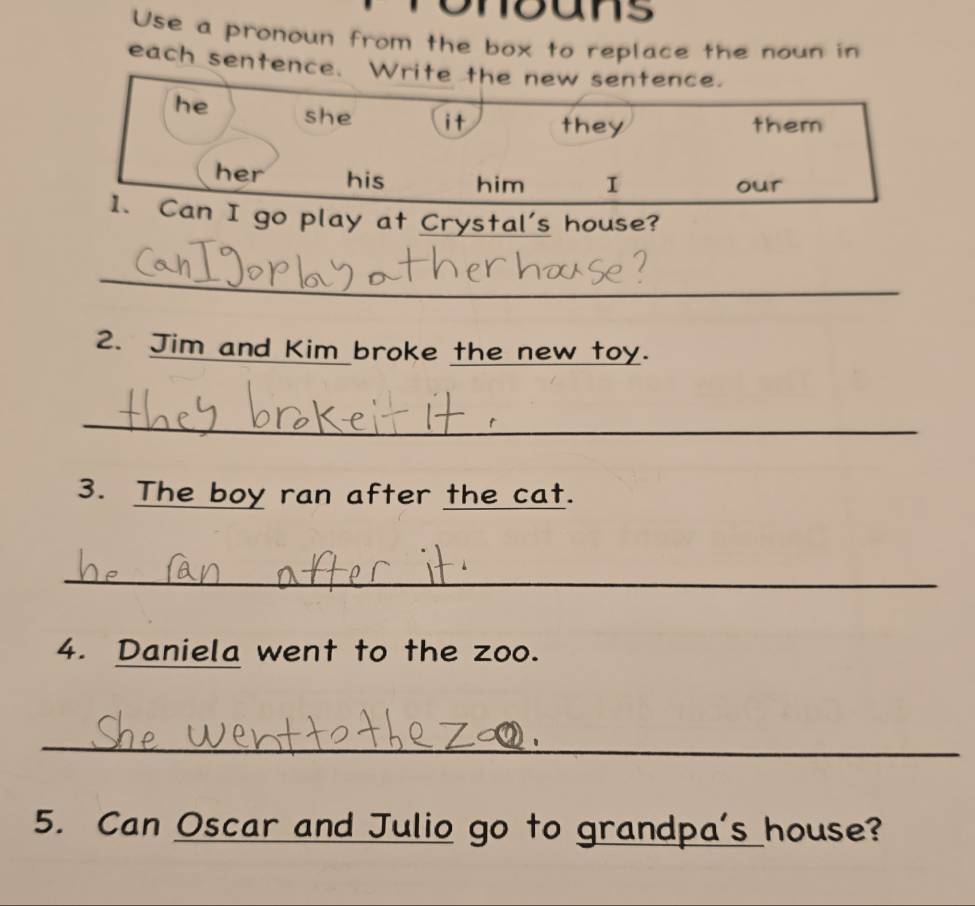 Pronouns
Use a pronoun from the box to replace the noun in
each sentence. Write the new sentence.
he she it they them
her his him I our
1. Can I go play at Crystal's house?
Can I go play at her house?
2. Jim and Kim broke the new toy.
they broke it it.
3. The boy ran after the cat.
he ran after it.
4. Daniela went to the zoo.
She went to the zoo.
5. Can Oscar and Julio go to grandpa's house?